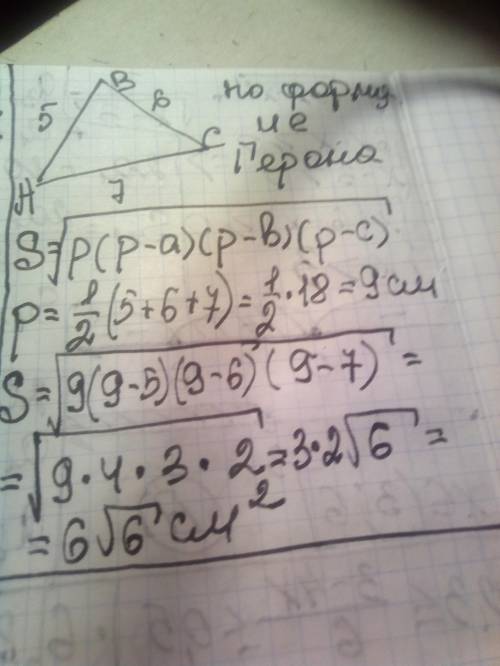 B
5
6
по форму
ле
C
Герона
A
7
S=√p(p-a)(p-b)(p-c)
p=1/2(5+6+7)=1/2·18=9см
S=√9(9-5)(9-6)(9-7)=
=√9·4·3·2=3·2√6=
=6√6 см²